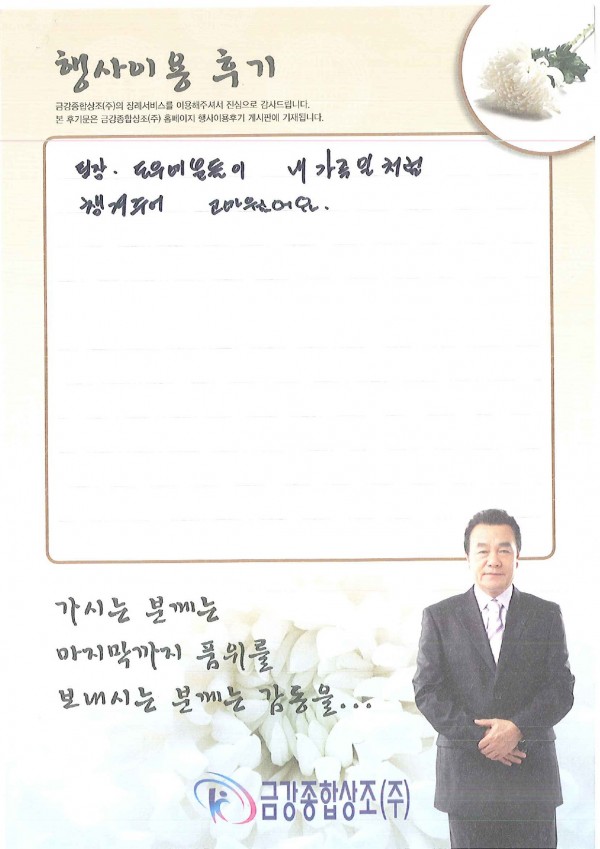 행사이용 후기
금강종합상조(주)의 장례서비스를 이용해주셔서 진심으로 감사드립니다.
본 후기문은 금강종합상조(주) 홈페이지 행사이용후기 게시판에 기재됩니다.
팀장. 도우미분들이 내 가족일처럼
챙겨주어 고마웠어요.
가시는 분께는
마지막까지 품위를
보내시는 분께는 감동을...
금강종합상조(주)